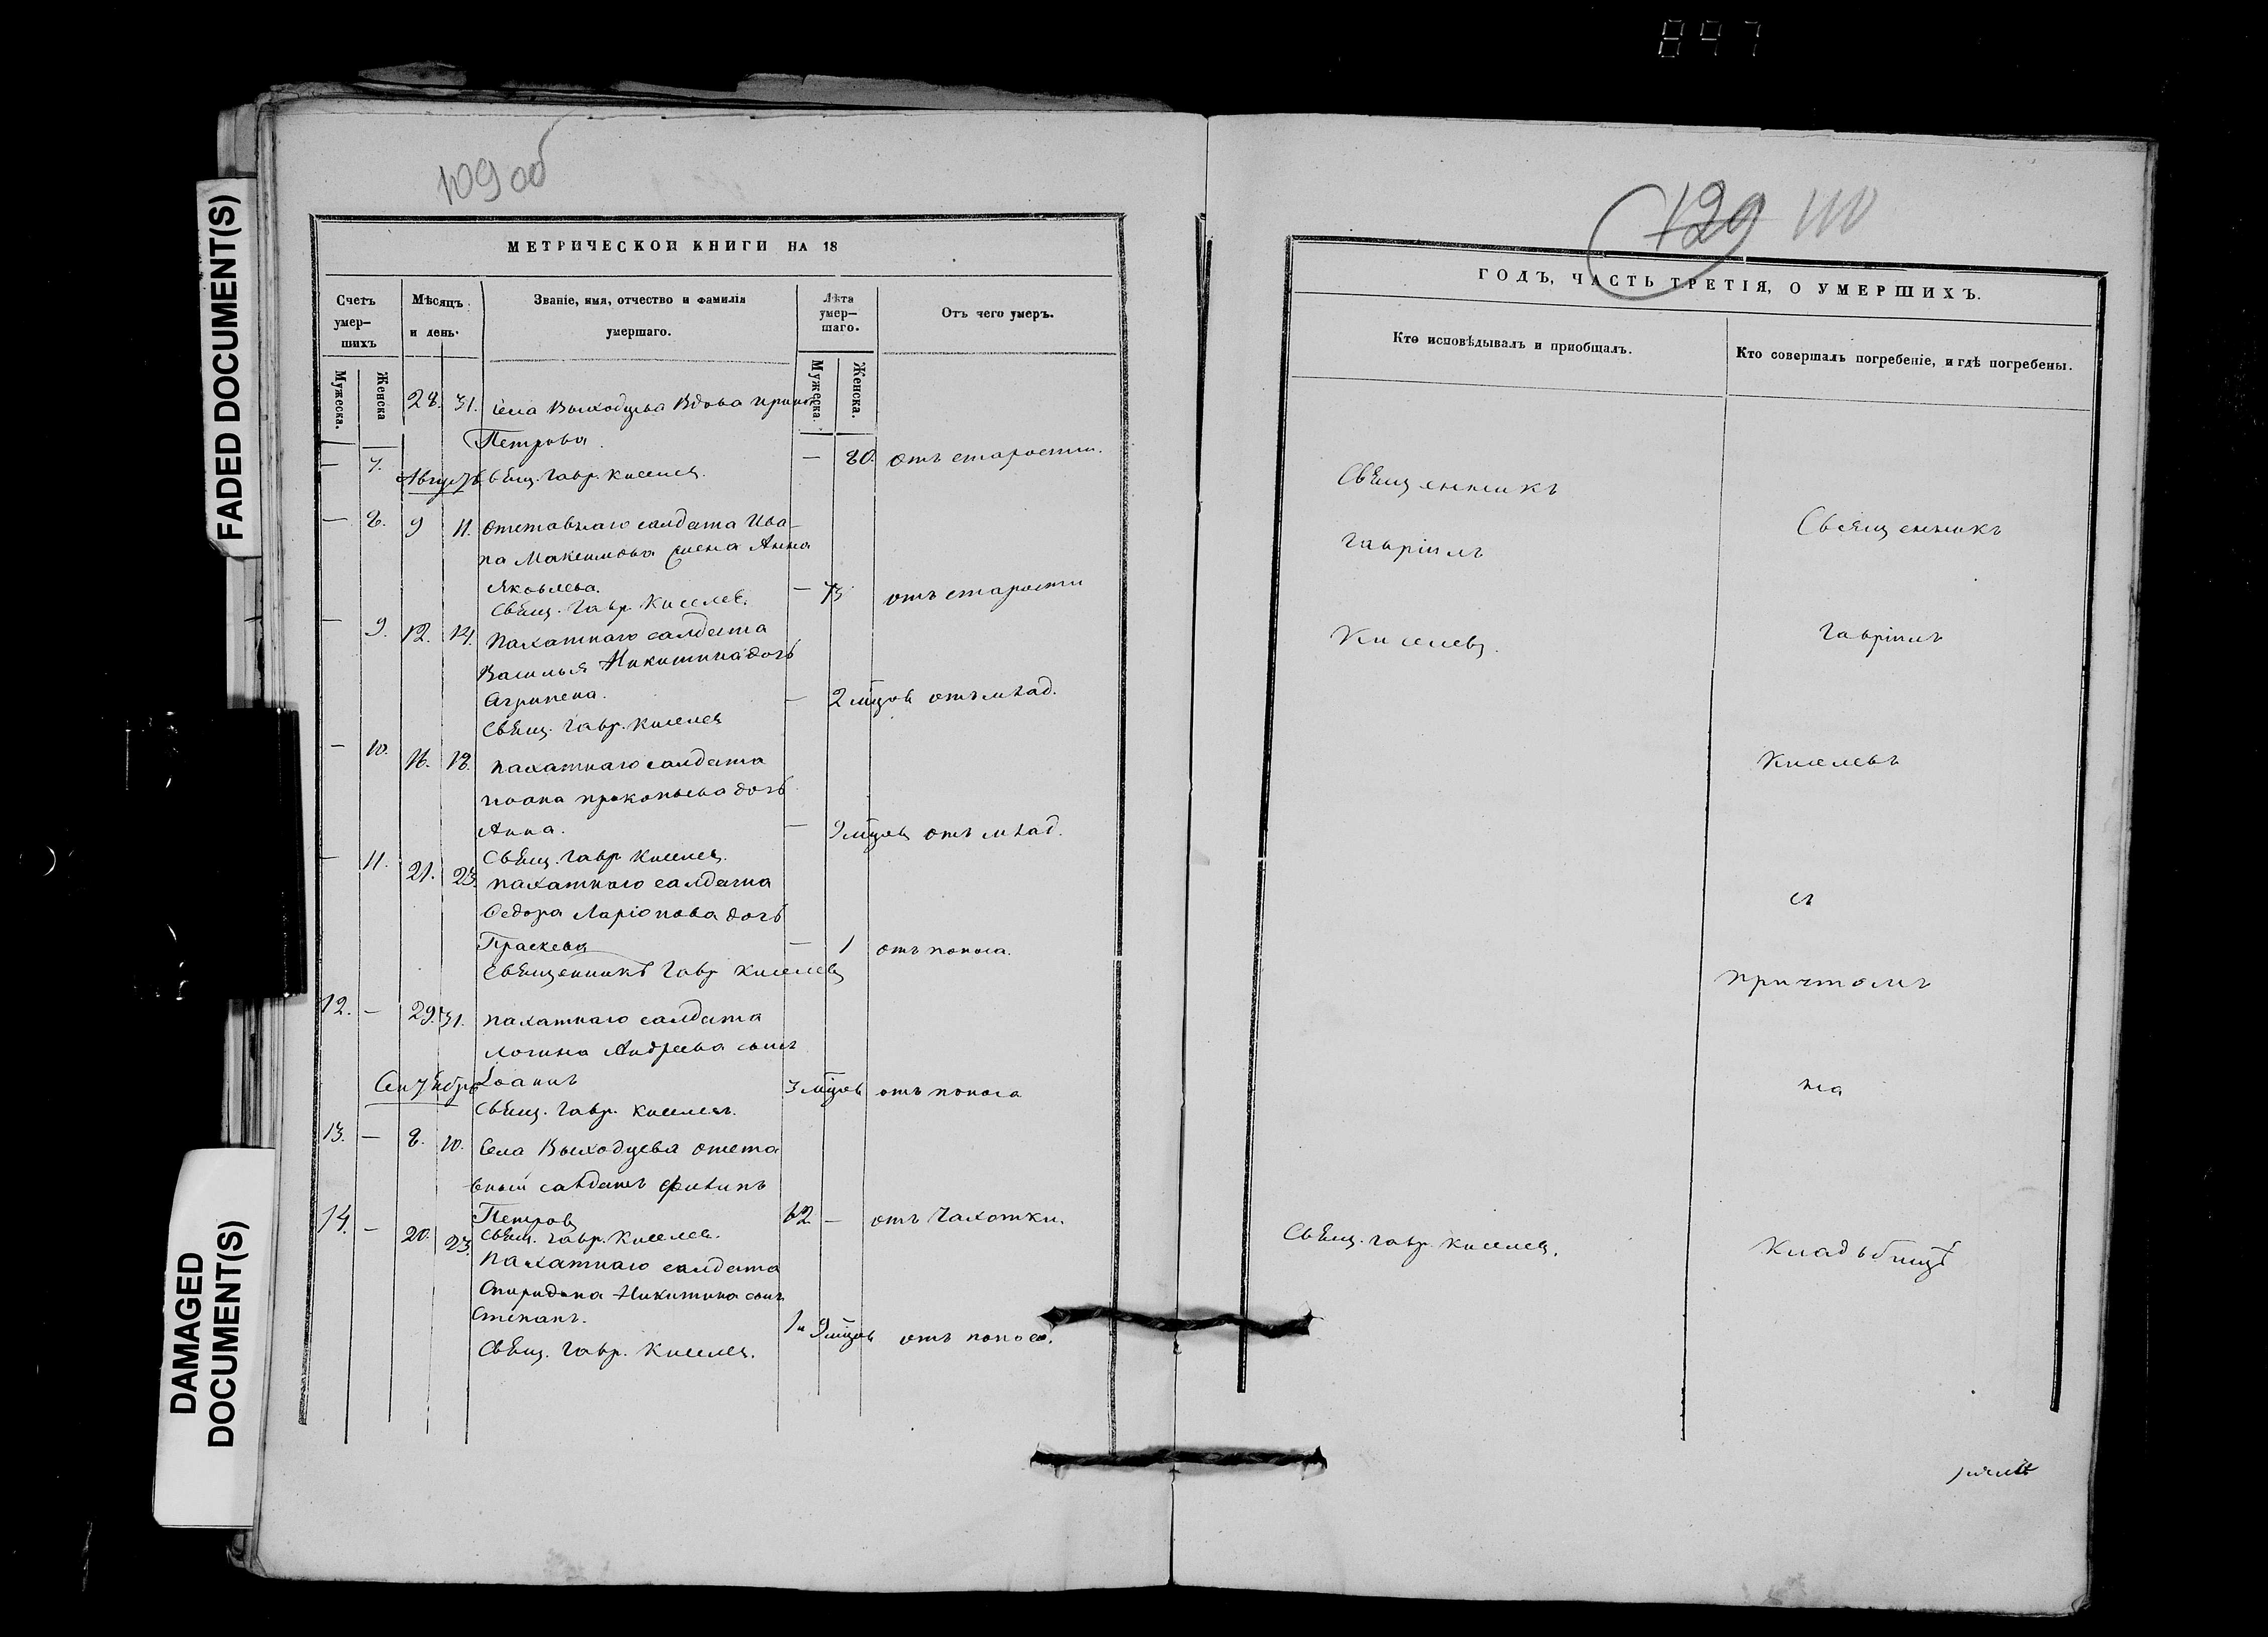 847
109 об
129 110
FADED DOCUMENT(S)
DAMAGED
DOCUMENT(S)
МЕТРИЧЕСКОЙ КНИГИ НА 18
Счетъ умер-шихъ
Мѣсяцъ и день.
Званіе, имя, отчество и фамилія умершаго.
Лѣта умер-шаго.
Отъ чего умеръ.
Мужеска. Женска
Мужеска. Женска.
28. 31. Села Выходцева Вдова Ирина
Петрова.
— 7. — 80. отъ старости.
Августъ Свящ. Гавр. Киселев.
— 8. 9 11. Отставнаго салдата Ива-
на Максимова жена Анна
Яковлева. — 75 отъ старости
Свящ. Гавр. Киселев.
— 9. 12. 14. Пахатнаго салдата
Василья Никитина дочь
Агрипена. — 2 мцов отъ млад.
Свящ. Гавр. Киселев
— 10. 16. 18. пахатнаго салдата
Иоана Прокопьева дочь
Анна. — 9 мцов отъ млад.
Свящ. Гавр Киселев.
— 11. 21. 23. пахатнаго салдата
Ѳедора Ларіонова дочь
Праскева — 1 отъ поноса.
Священникъ Гавр Киселев
12. — 29. 31. пахатнаго салдата
Логина Андреева сынъ
Сентябрь Іоаннъ 3 мцов отъ поноса
Свящ. Гавр. Киселев.
13. — 8. 10. Села Выходцева отста
вный салдатъ Филипъ
Петров 62 — отъ Чахотки.
Свящ. Гавр. Киселев.
14. — 20. 23. Пахатнаго салдата
Спиридона Никитина сынъ
Степанъ. 1 и 9 мцов отъ поноса.
Свящ. Гавр. Киселев.
ГОДЪ, ЧАСТЬ ТРЕТІЯ, О УМЕРШИХЪ.
Кто исповѣдывалъ и пріобщалъ.
Кто совершалъ погребеніе, и гдѣ погребены.
Священникъ
Гавріилъ
Киселев.
Свящ. Гавр. Киселев.
Священникъ
Гавріилъ
Киселевъ
съ
причтомъ
на
Кладьбищѣ